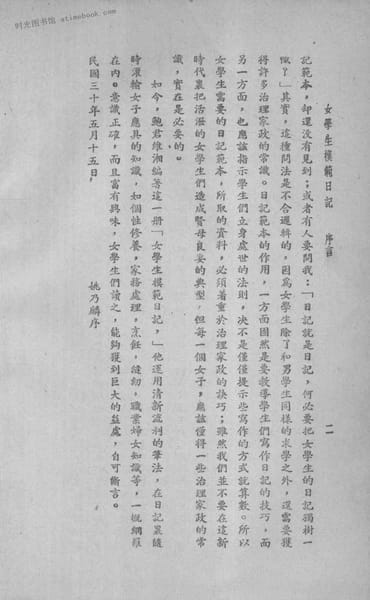 时光图书馆·atimebook.com
女學生模範日記　序言　二
記範本，却還沒有見到；或者有人要問我：「日記就是日記，何必要把女學生的日記獨樹一
幟丫」其實，這種問法是不合邏輯的，因爲女學生除了和男學生同樣的求學之外，還需要獲
得許多治理家政的常識。日記範本的作用，一方面固然是要教導學生們寫作日記的技巧，而
另一方面，也應該指示學生們立身處世的法則，决不是僅僅提示些寫作的方式就算數。所以
女學生需要的日記範本，所取的資料，必須着重於治理家政的訣巧；雖然我們並不要在這新
時代裏把活潑的女學生們造成賢母良妻的典型，但每一個女子，應該懂得一些治理家政的常
識，實在是必要的。
如今，鮑君維湘編著這一册「女學生模範日記，」他運用清新流利的筆法，在日記裏隨
時灌輸女子應具的知識，如個性修養，家務處理，烹飪，縫紉，職業婦女知識等，一概網羅
在內。意識正確，而且富有興味，女學生們讀之，能夠獲到巨大的益處，自可斷言。
民國三十年五月十五日，　姚乃麟序